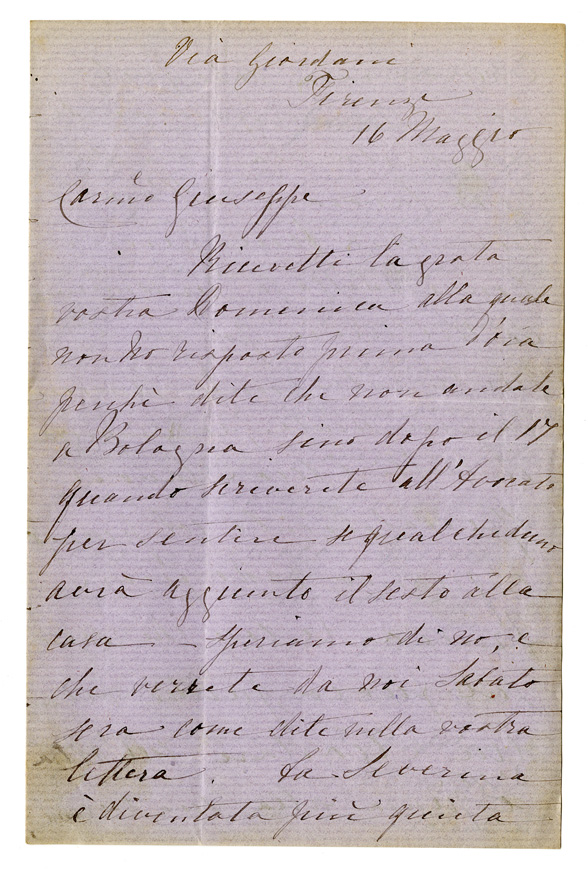 Via Giordani
Firenze
16 Maggio
Carino Giuseppe
Ricevetti la grata
vostra Domenica alla quale
non ho risposto prima d'ora
perchè dite che non andate
a Bologna sino dopo il 17
quando scriverete all'Avocato
per sentire se qualcheduno
avrà aggiunto il sesto alla
casa – speriamo di no, e
che verrete da noi Sabato
sera come dite nella vostra
lettera. La Severina
è diventata più quieta